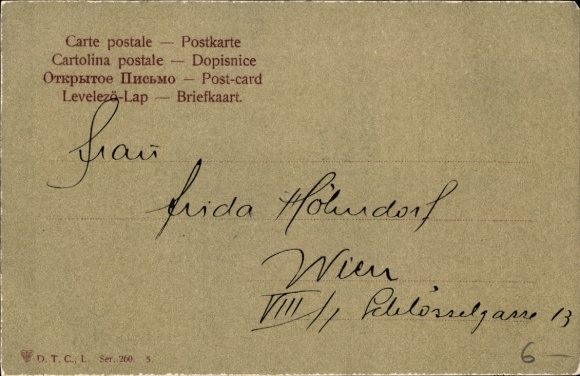 Carte postale — Postkarte
Cartolina postale — Dopisnice
Открытое Письмо — Post-card
Levelező-Lap — Briefkaart.
Frau
Frida Höhndorf
Wien
VIII/1 Schlösselgasse 13
D. T. C., L. Ser. 260. 5.
6 —